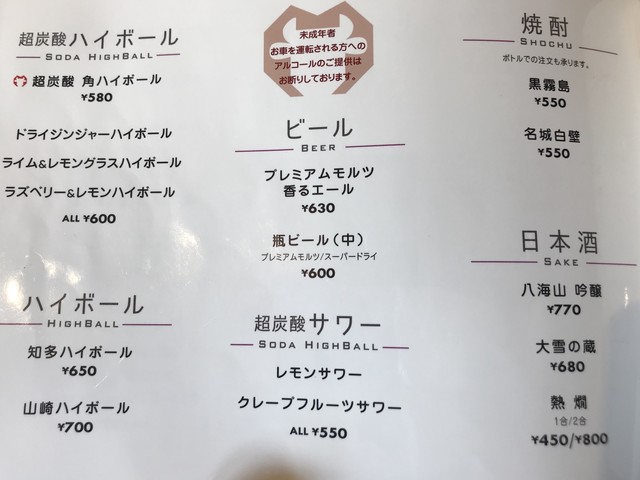 超炭酸 ハイボール
SODA HIGHBALL
超炭酸 角ハイボール
¥580
ドライジンジャーハイボール
ライム&レモングラスハイボール
ラズベリー&レモンハイボール
ALL ¥600
ハイボール
HIGHBALL
知多ハイボール
¥650
山崎ハイボール
¥700
未成年者
お車を運転される方への
アルコールのご提供は
お断りしております。
ビール
BEER
プレミアムモルツ
香るエール
¥630
瓶ビール(中)
プレミアムモルツ/スーパードライ
¥600
超炭酸 サワー
SODA HIGHBALL
レモンサワー
クレープフルーツサワー
ALL ¥550
焼酎
SHOCHU
ボトルでの注文も承ります。
黒霧島
¥550
名城白壁
¥550
日本酒
SAKE
八海山 吟醸
¥770
大雪の蔵
¥680
熱燗
1合/2合
¥450/¥800